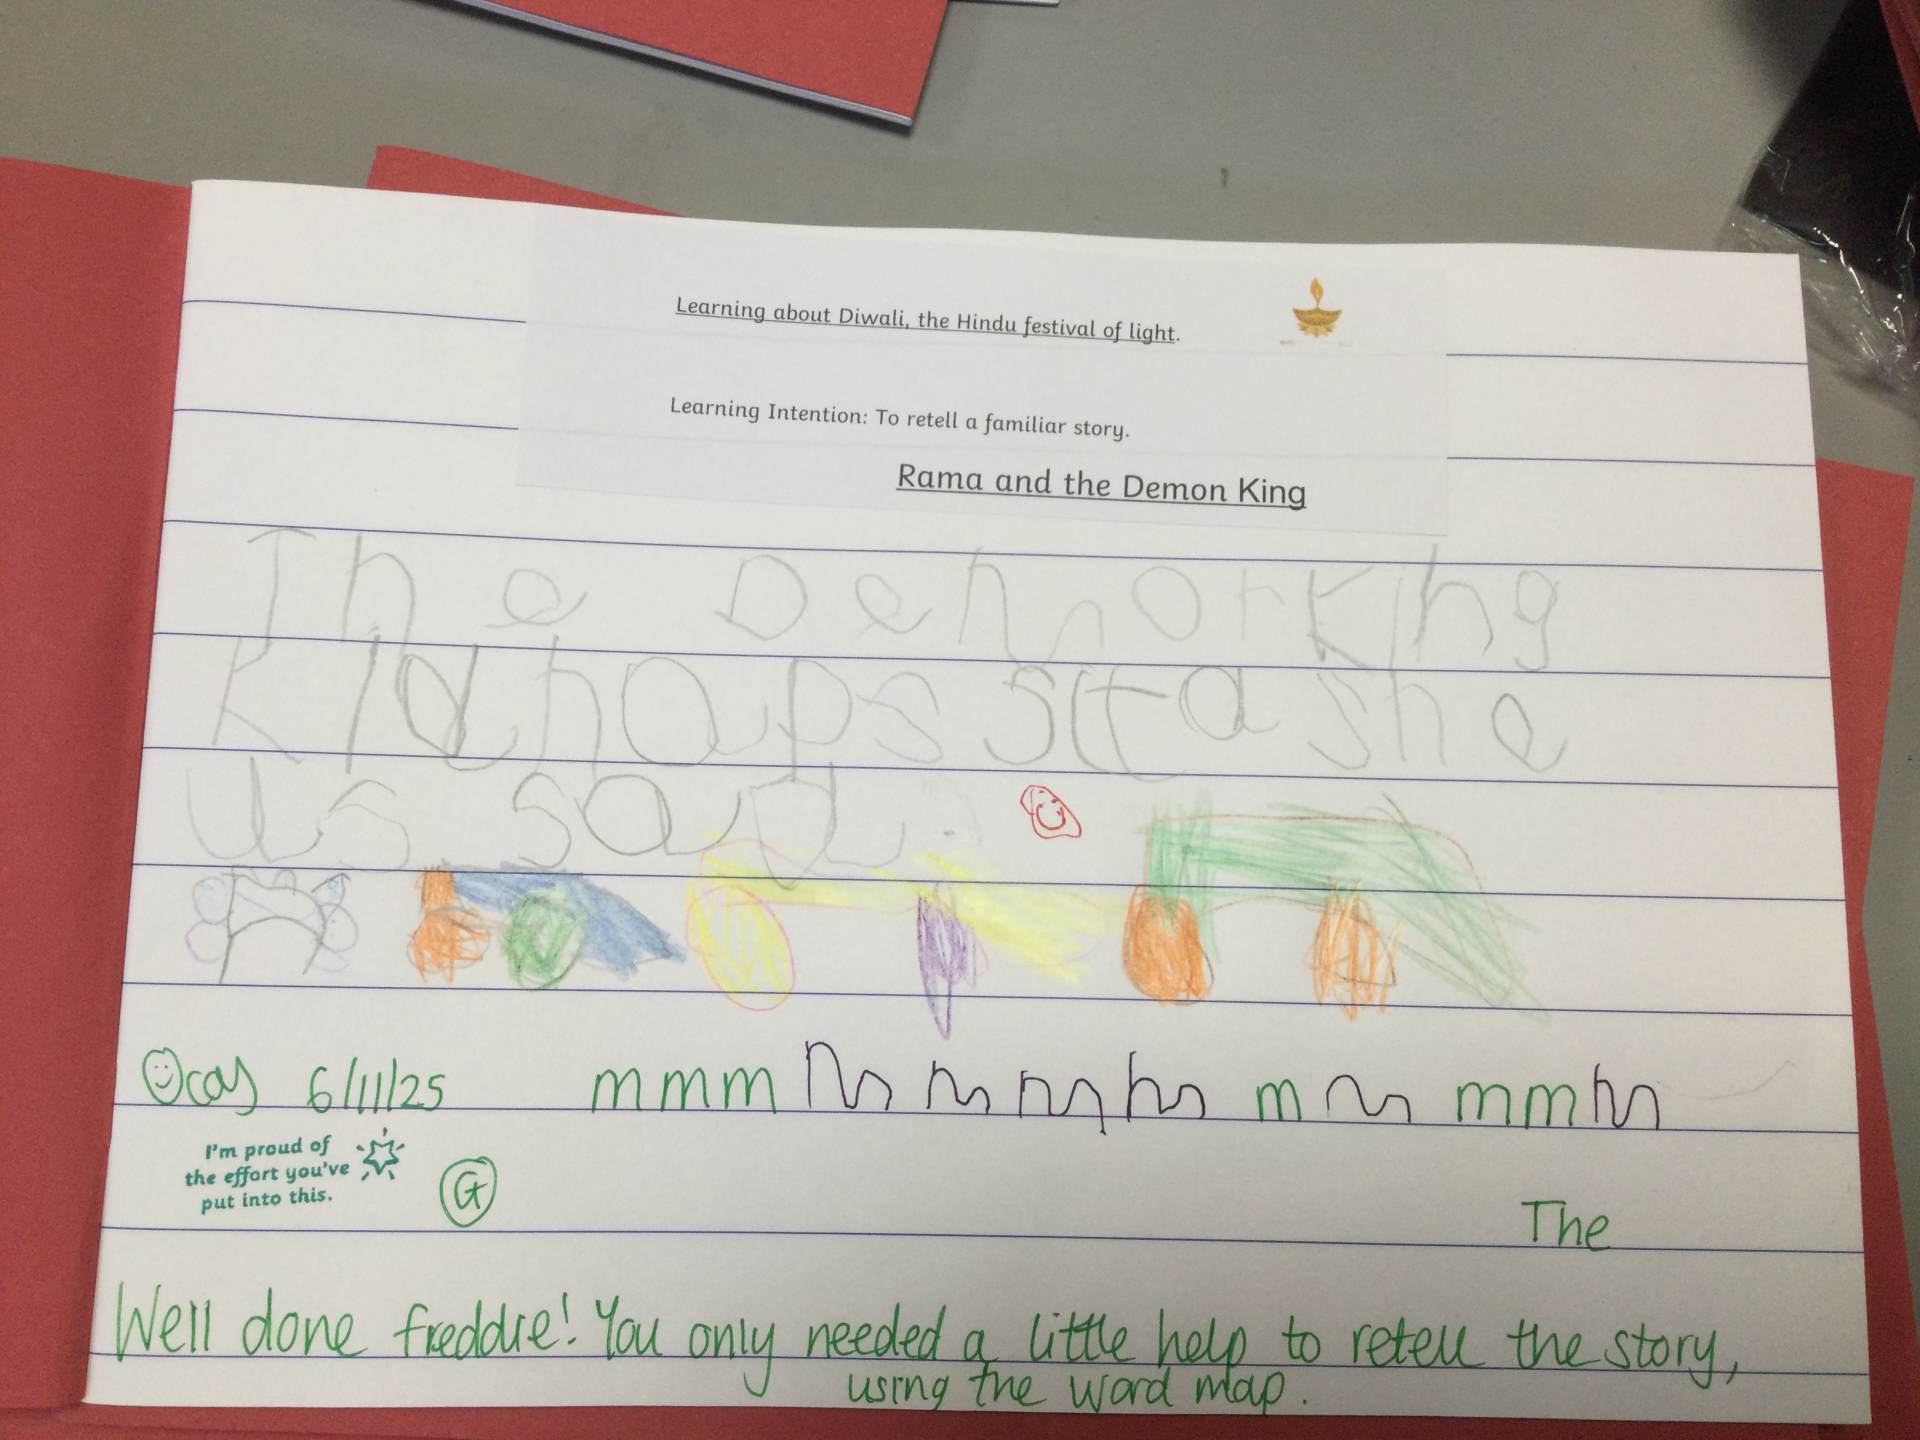 Learning about Diwali, the Hindu festival of light.
Learning Intention: To retell a familiar story.
Rama and the Demon King
The Demon King
Kidnaps sita she
is sad.
6/11/25 m m m m m m m m m m m m
I'm proud of
the effort you've
put into this.
G
The
Well done freddie! You only needed a little help to retell the story,
using the word map.